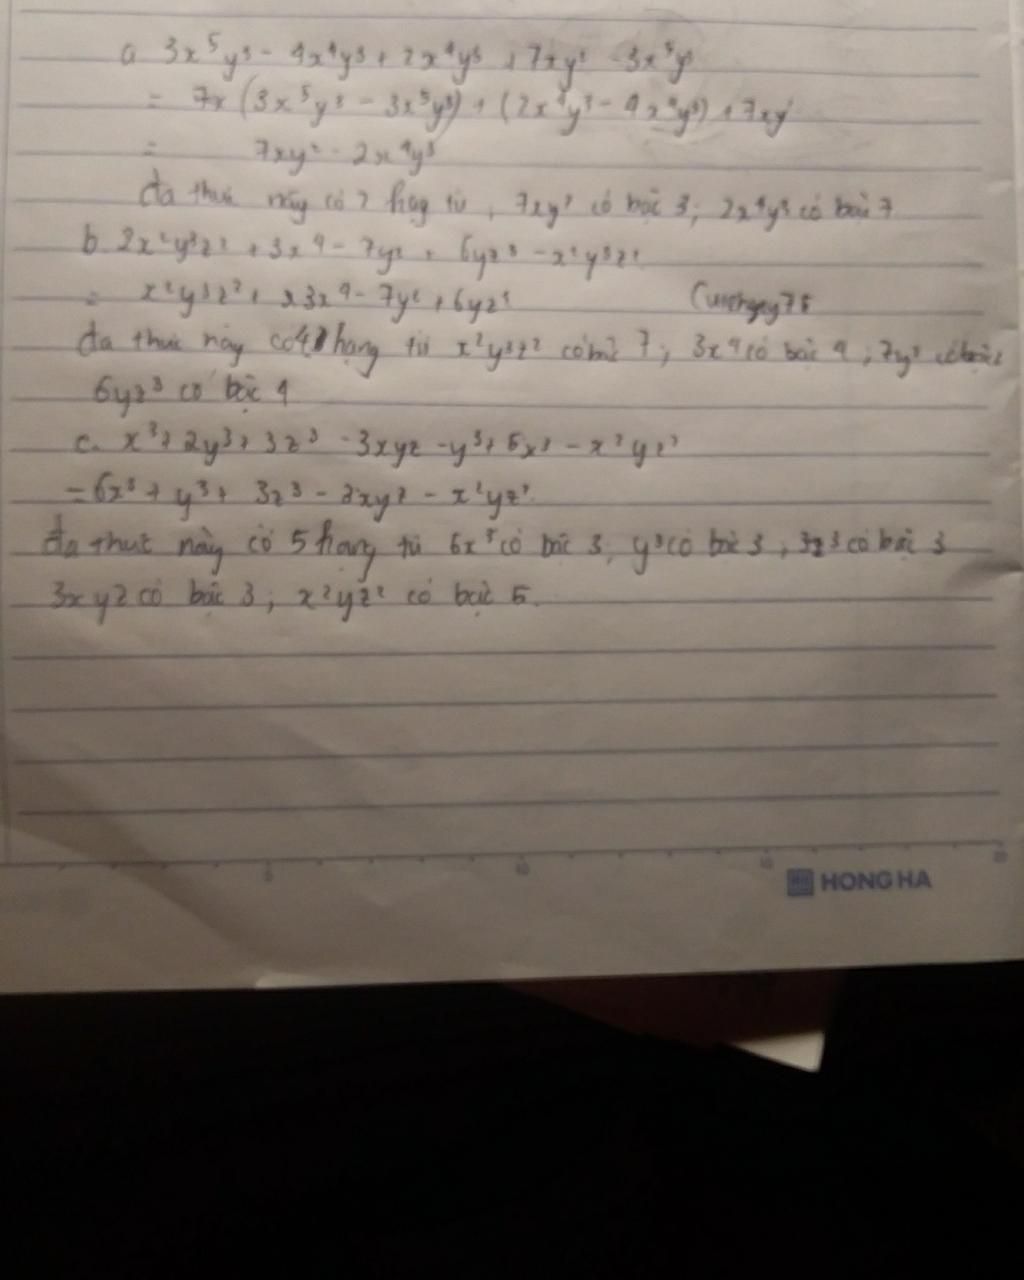 a 3x⁵y³ - 4x⁴y³ + 2x⁴y³ + 7xy² - 3x⁵y³
= 7x (3x⁵y³ - 3x⁵y³) + (2x⁴y³ - 4x⁴y³) + 7xy²
= 7xy² - 2x⁴y³
đa thức này có 2 hạng tử, 7xy² có bậc 3; 2x⁴y³ có bậc 7
b. 2x²y³z² + 3x⁴ - 7yz + 6yz³ - x²y³z²
= x²y³z² + 3x⁴ - 7y² + 6yz³
đa thức này có 4 hạng tử x²y³z² có bậc 7; 3x⁴ có bậc 4; 7y² có bậc 2
6yz³ có bậc 4
c. x³ + 2y³ + 3z³ - 3xyz - y³ + 5x³ - x²yz²
= 6x³ + y³ + 3z³ - 3xyz - x²yz².
đa thưc này có 5 hạng tử 6x³ có bậc 3; y³ có bậc 3; 3z³ có bậc 3
3xyz có bậc 3; x²yz² có bậc 5.
HONG HA